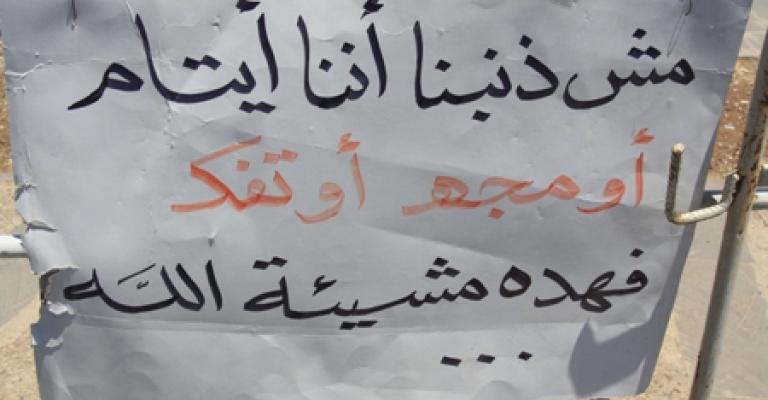 مش ذنبنا أننا أيتام
أو مجهـ أو تفكـ
فهده مشيئة اللَّه
...